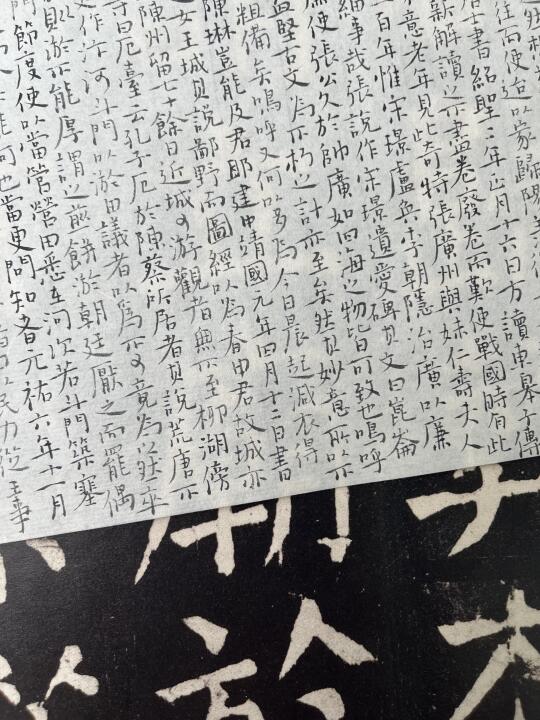 往而便造以家歸陽
居士書紹聖二年正月十六日方讀東皋子傳
新解讀之不盡卷廢卷而歎使戰國時有此
意老年見此奇特張廣州與妹仁壽夫人
百年惟宋璟盧奐李朝隱治廣以廉
細事哉張說作宋璟遺愛碑其文曰崑崙
使張公久於帥廣如四海之物皆可致也嗚呼
益堅古文為不朽之計亦至矣然其妙意所以不
粗備矣嗚呼又何以多為今日晨起減衣得
陳琳豈能及君耶建中靖國元年四月十二日書
女王城其說鄙野而圖經以為春申君故城亦
陳州留七十餘日近城可游觀者無不至柳湖傍
曰厄臺云孔子厄於陳蔡所居者其說荒唐不
作汴河斗門以淤田議者以為不可竟為之然卒
淤不能厚謂之煎餅淤朝廷厭之而罷偶
節度使以當營營田悉在河次若斗門築塞
能何也當更問知者元祐六年十一月
民力從王事
朝
於